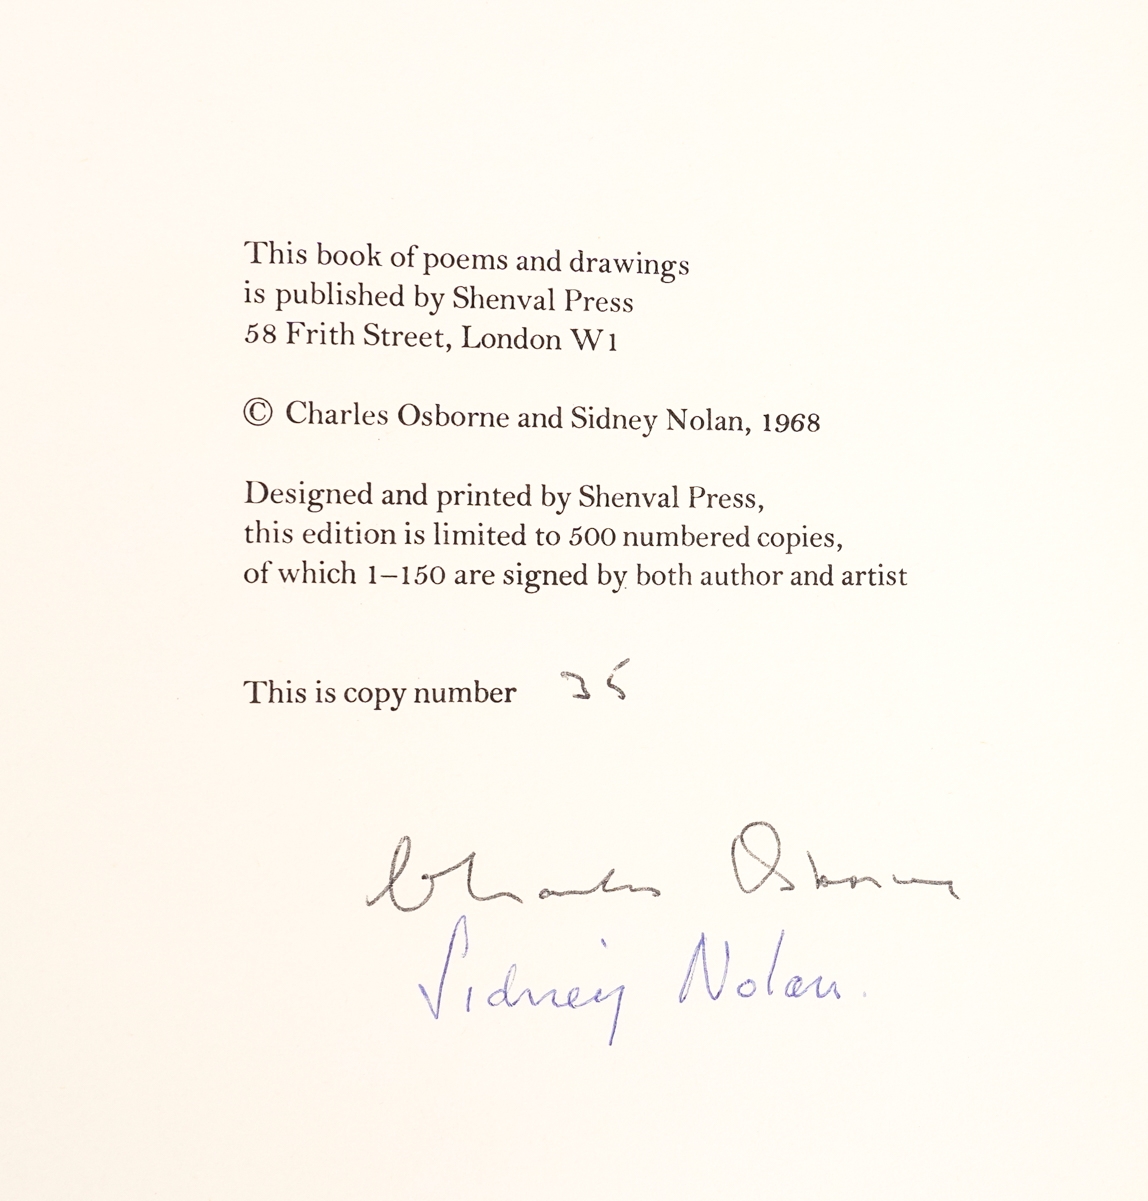 This book of poems and drawings
is published by Shenval Press
58 Frith Street, London W1
© Charles Osborne and Sidney Nolan, 1968
Designed and printed by Shenval Press,
this edition is limited to 500 numbered copies,
of which 1–150 are signed by both author and artist
This is copy number 35
Charles Osborne
Sidney Nolan.